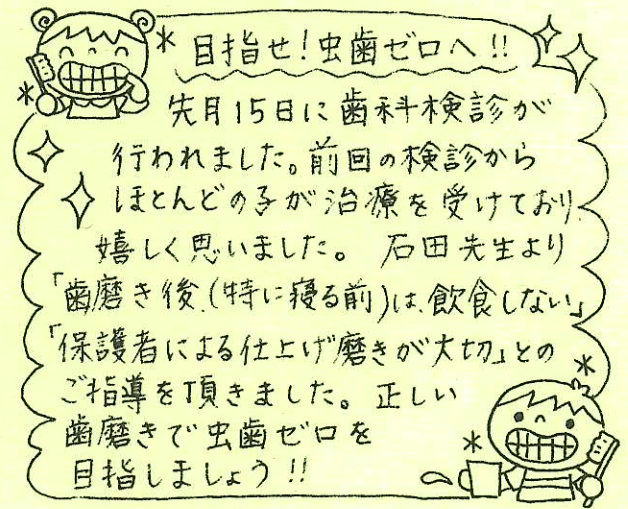 目指せ!虫歯ゼロへ!!
先月15日に歯科検診が
行われました。前回の検診から
ほとんどの子が治療を受けており、
嬉しく思いました。 石田先生より
「歯磨き後、(特に寝る前)は、飲食しない」
「保護者による仕上げ磨きが大切」との
ご指導を頂きました。正しい
歯磨きで虫歯ゼロを
目指しましょう!!